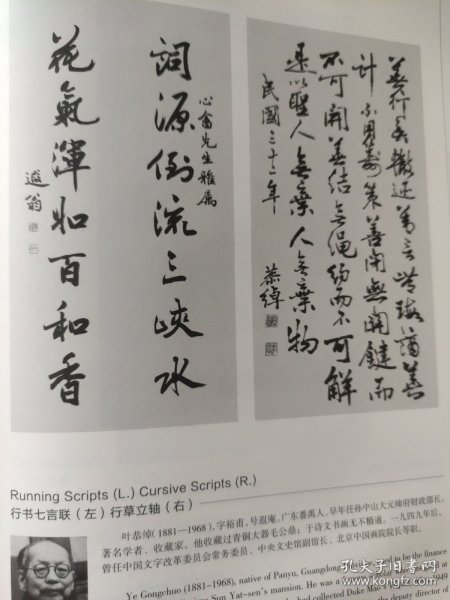 善行無轍迹善言無瑕謫善
計不用籌策善閉無關鍵而
不可開善結無繩約而不可解
是以聖人無棄人無棄物
民國三十二年
恭綽
心畬先生雅属
詞源倒流三峽水
花氣渾如百和香
遐翁
Running Scripts (L.) Cursive Scripts (R.)
行书七言联（左）行草立轴（右）
叶恭绰(1881—1968)，字裕甫，号遐庵。广东番禺人。早年任孙中山大元帅府财政部长。
著名学者、收藏家。他收藏过青铜大器毛公鼎；于诗文书画无不精通。一九四九年后，
曾任中国文字改革委员会常务委员、中央文史馆副馆长、北京中国画院院长等职。
Ye Gongchuo (1881–1968), native of Panyu, Guangdong to be the finance
Sun Yat-sen's mansion. He was a
had collected Duke Mao's 1949
deputy director of
孔夫子旧书网